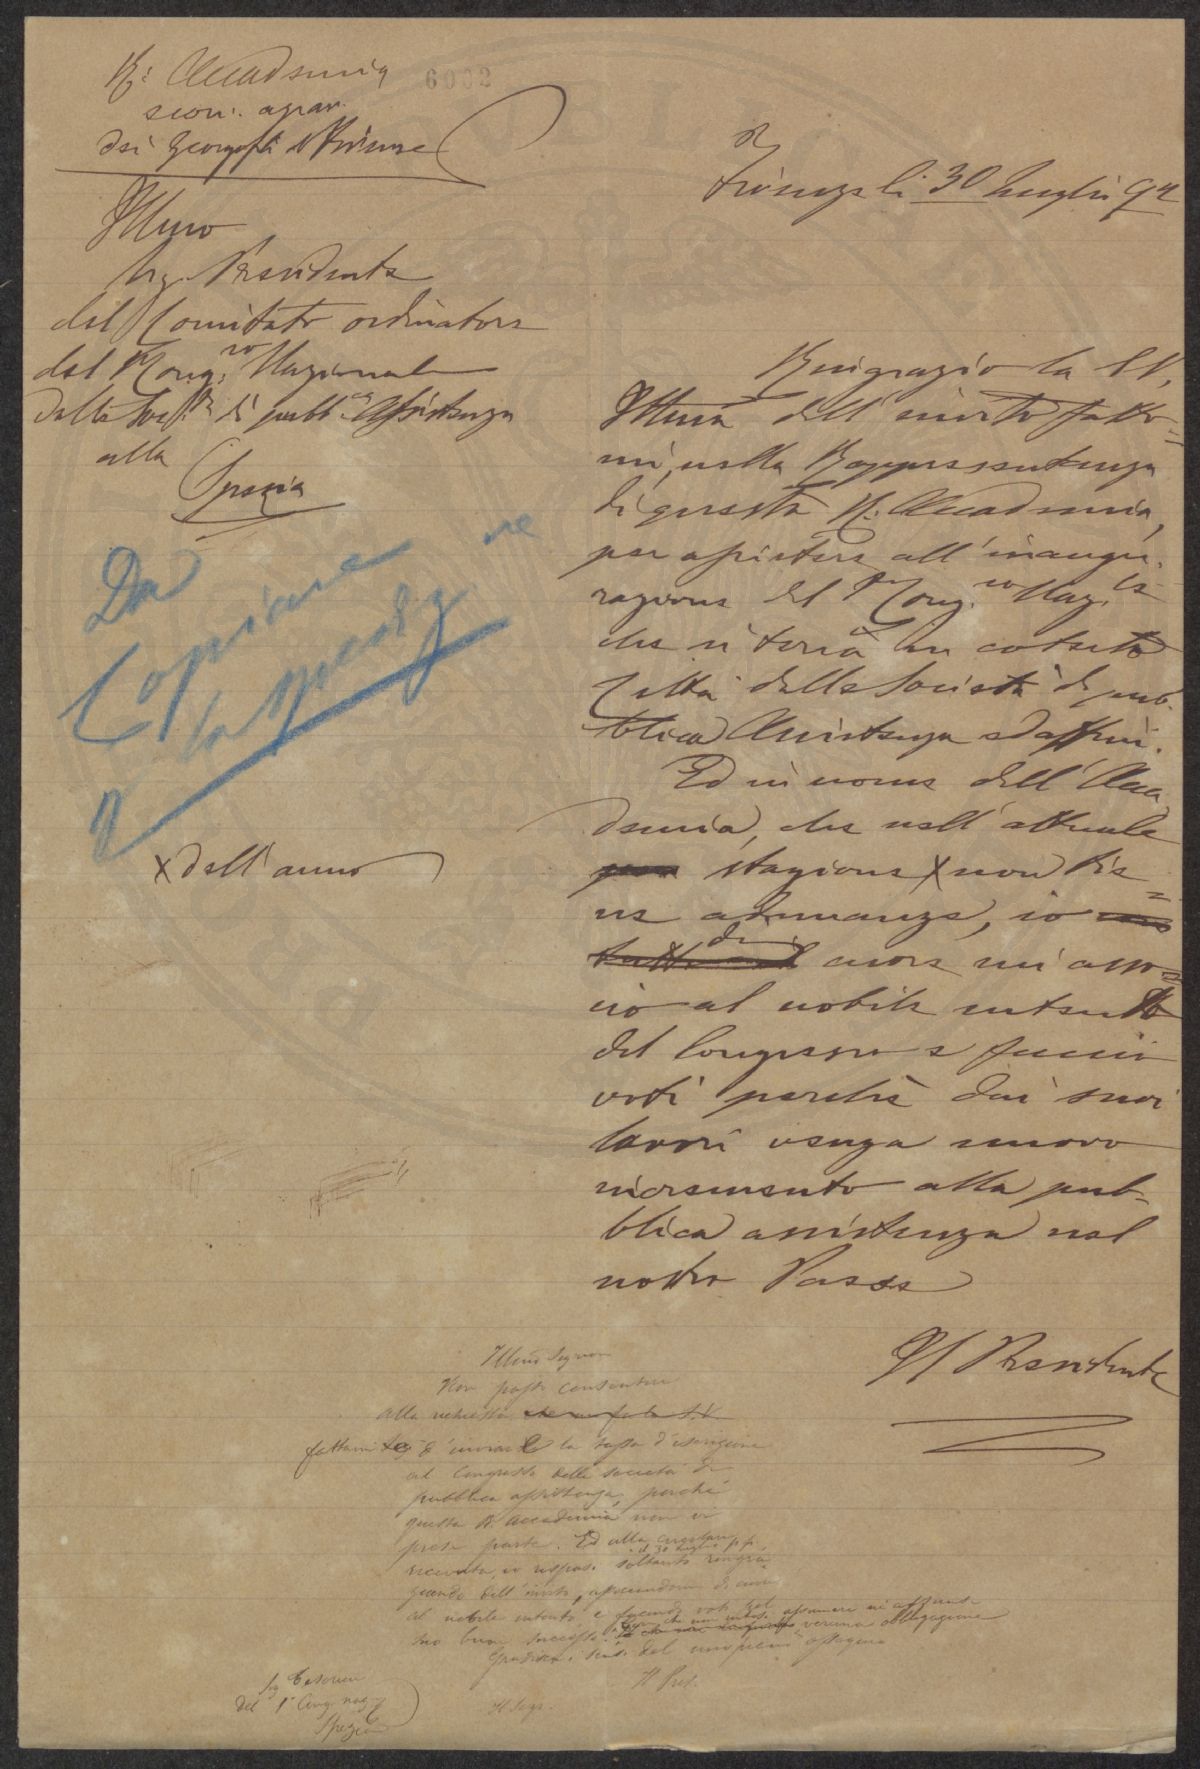 R. Accademia
econ. agrar.
dei Georgofili di Firenze
6002
Firenze li 30 Luglio 92
Illmo
Sig. Presidente
del Comitato ordinatore
del 1° Cong.so Nazionale
delle Soc.tà di pubb.ca Assistenza
alla
Spezia
Da
Copiare
e la spediz
ne
X dell'anno
Ringrazio la S.V.
Illma dell'invito fatto=
mi, nella Rappresentanza
di questa R. Accademia,
per assistere all'inaugu.
razione del 1° Cong.so Naz.le
che si terrà in cotesta
Città delle Società di pub.
blica Assistenza ed affini.
Ed in nome dell'Acca
demia, che nell'attuale
stagione X non tie=
ne adunanze, io
di cuore mi asso=
cio al nobile intento
del Congresso e faccio
voti perchè dai suoi
lavori venga nuovo
incremento alla pub-
blica assistenza nel
nostro Paese
Il Presidente
Illmo Signore
Non posso consentire
alla richiesta che mi fa la S.V.
fattami d'inviare la tassa d'iscrizione
al Congresso delle società di
pubblica assistenza, perchè
questa R. Accademia non vi
prese parte. Ed alla circolare
il 30 Luglio p.p.
ricevuta, io risposi soltanto ringra
ziando dell'invito, associandomi di cuore
al nobile intento e facendo voti pel
suo buon successo. che non intesi assumere nè assunsi
veruna obbligazione
Il Pres.
Il Segr.
Sig Tesoriere
del 1° Cong. naz.
Spezia